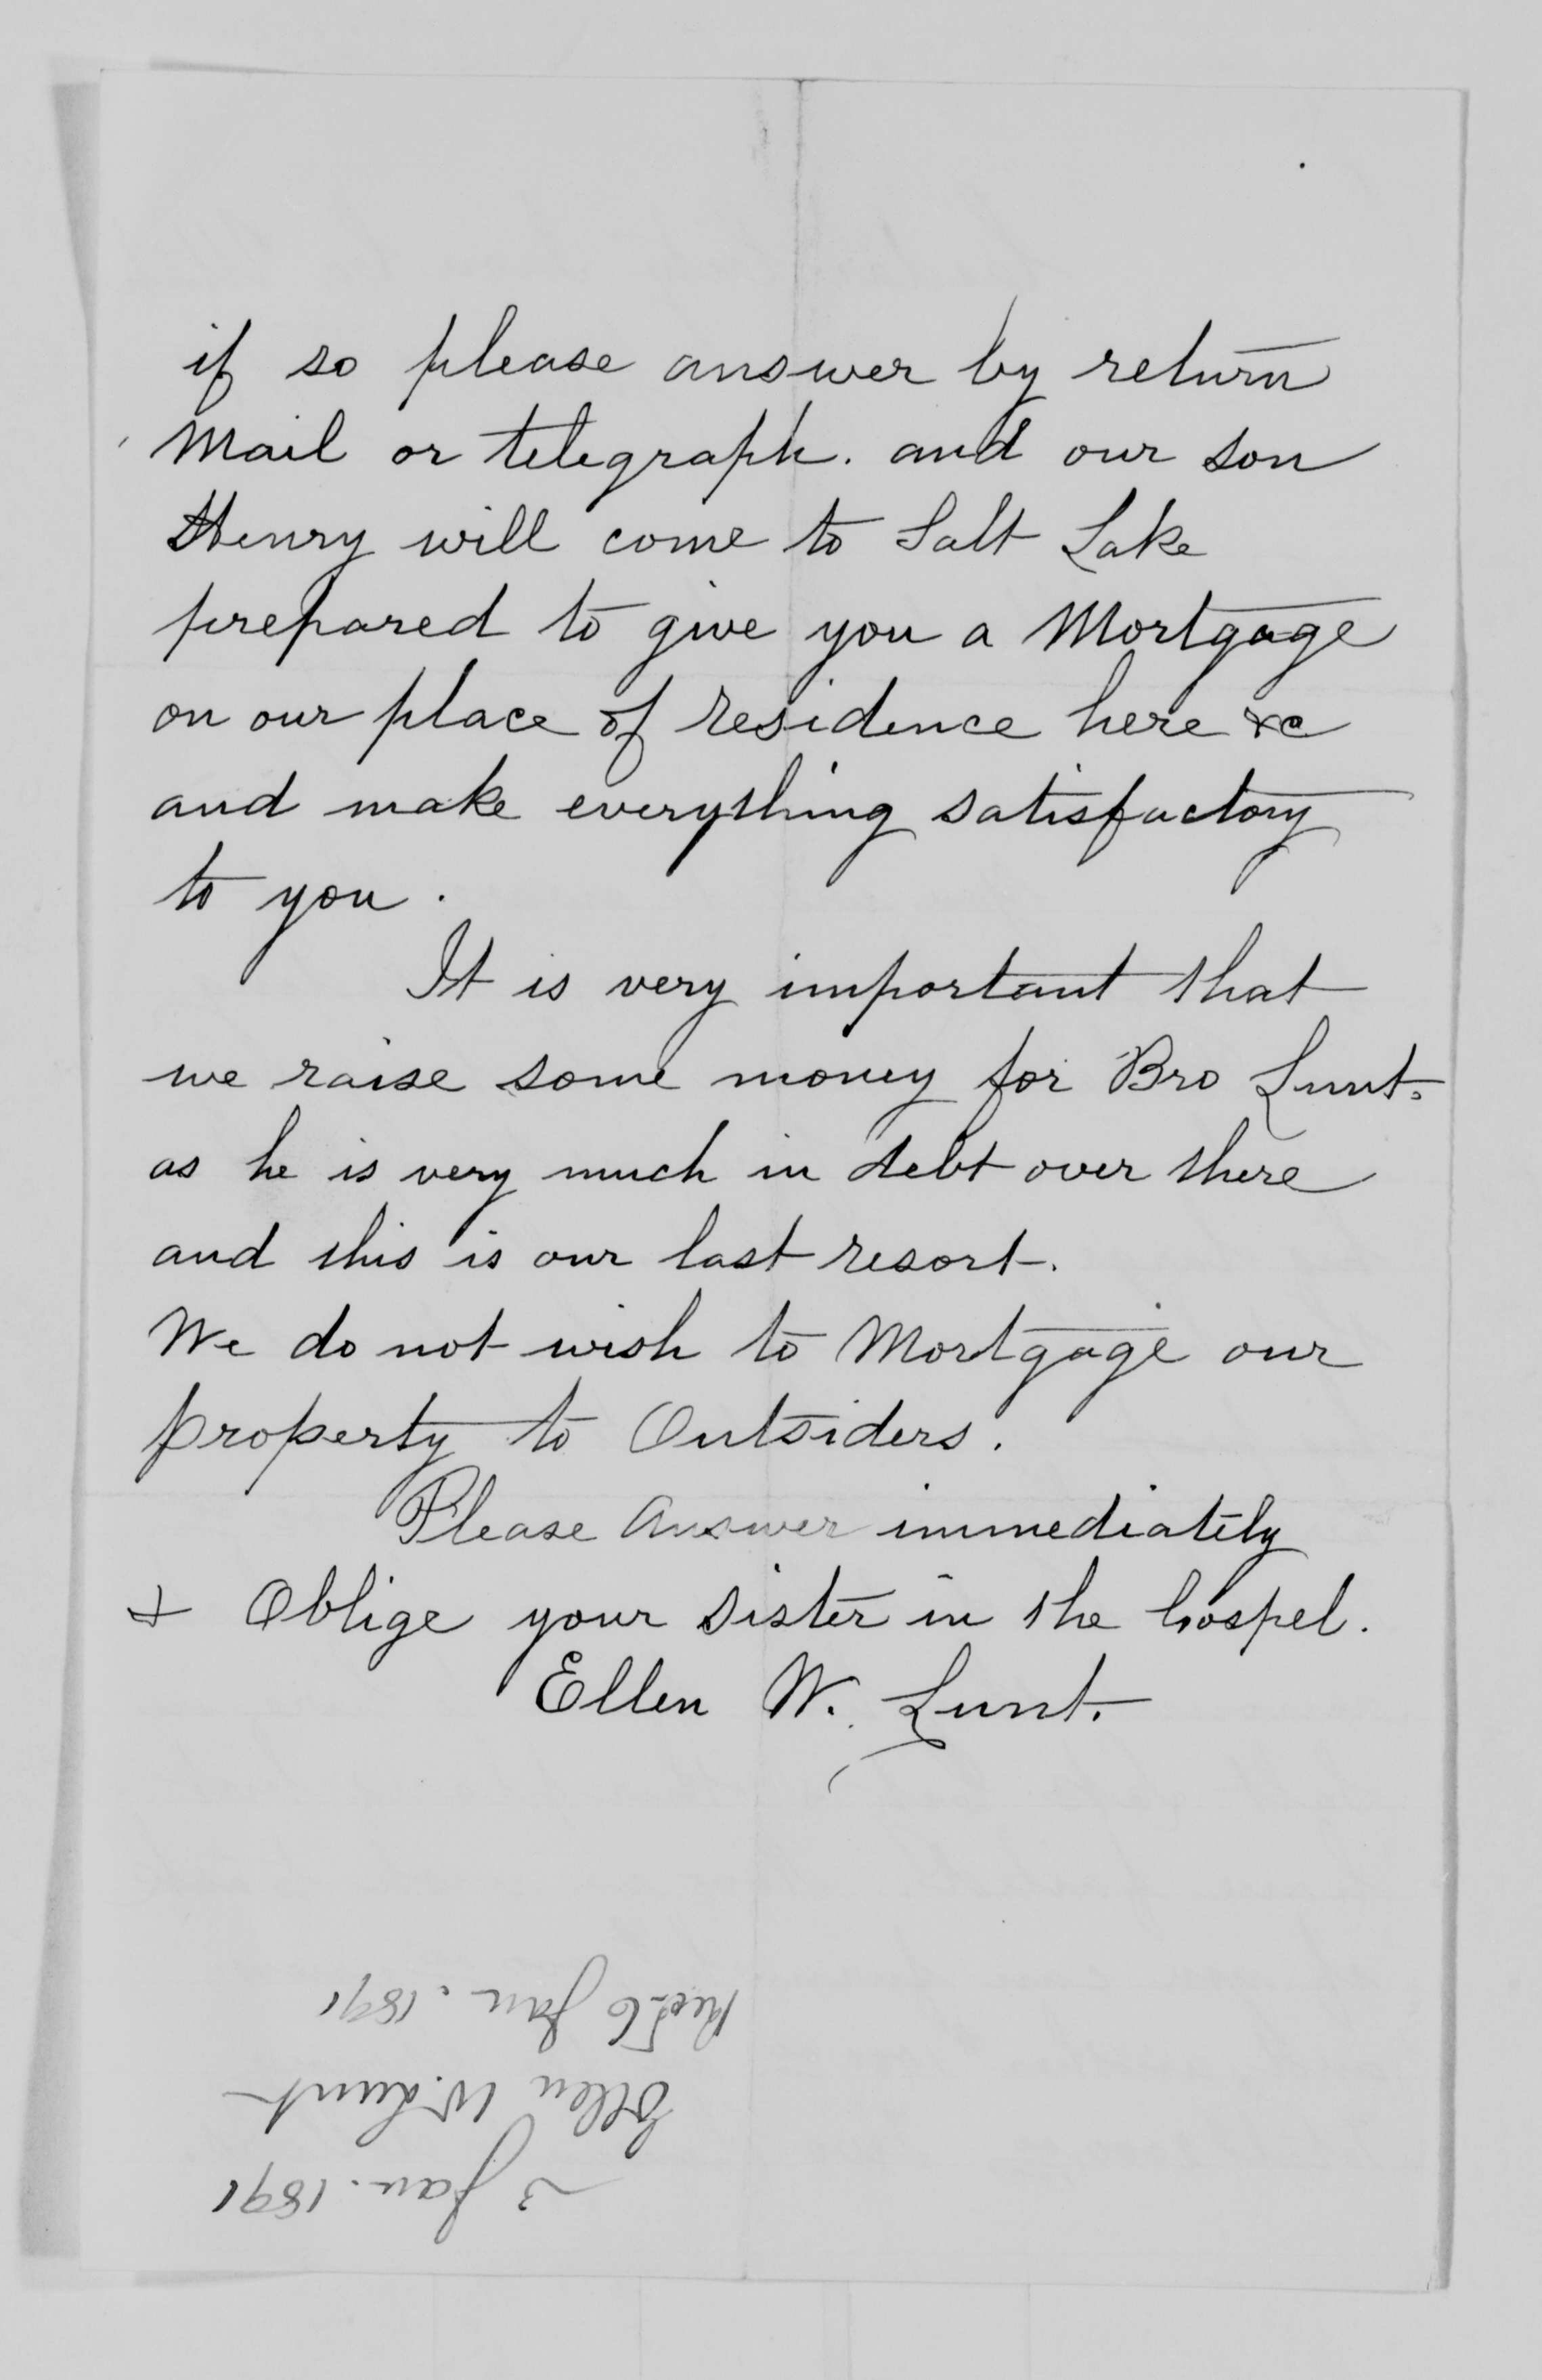 if so please answer by return
Mail or telegraph. and our son
Henry will come to Salt Lake
prepared to give you a Mortgage
on our place of residence here &c
and make everything satisfactory
to you.
It is very important that
we raise some money for Bro Lunt.
as he is very much in debt over there
and this is our last resort.
We do not wish to Mortgage our
property to Outsiders.
Please Answer immediately
& Oblige your Sister in the Gospel.
Ellen W. Lunt.
3 Jan. 1891
Ellen W. Lunt
Recd 6 Jan. 1891